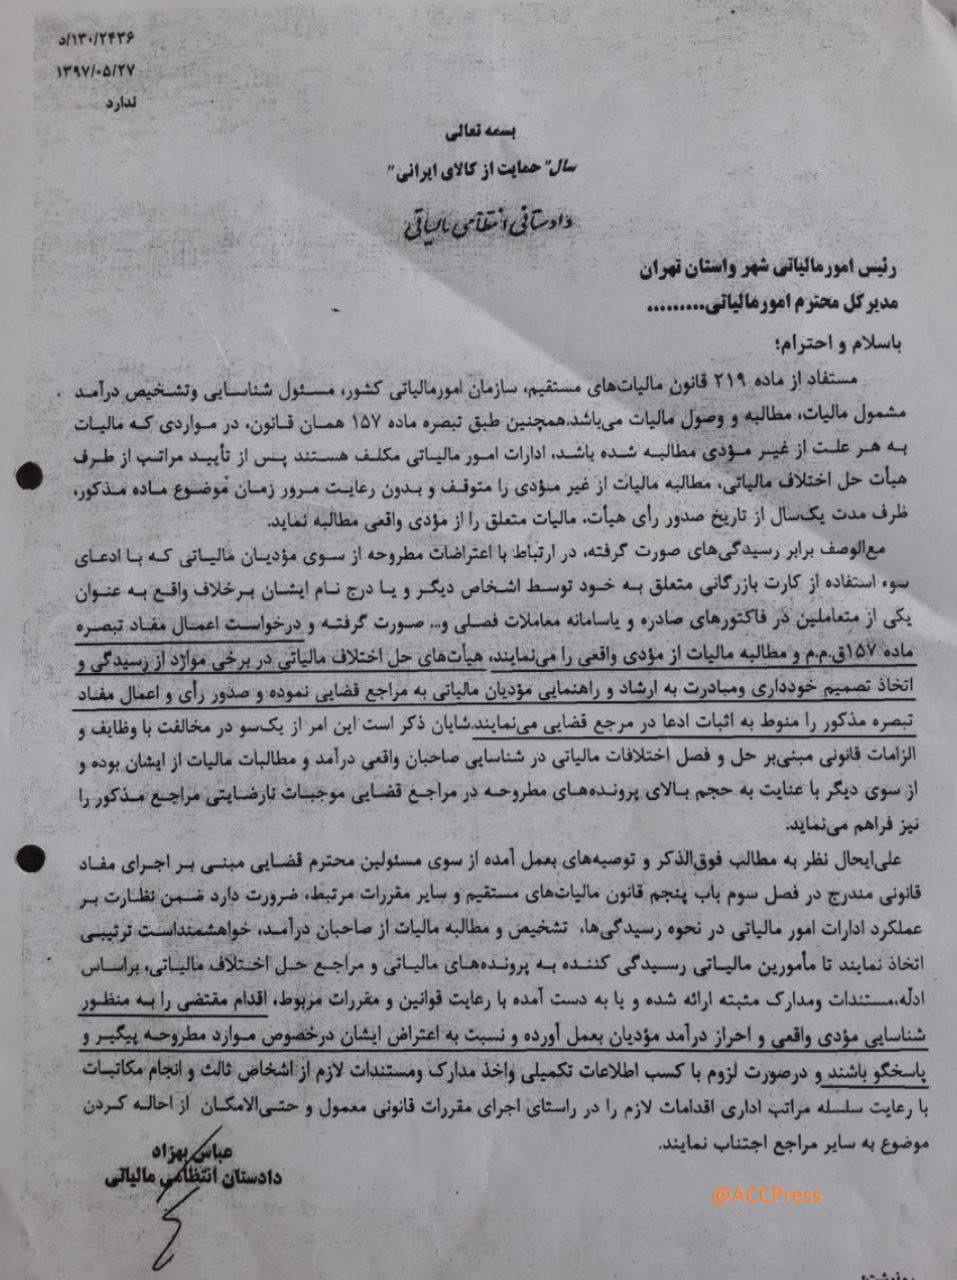 ۱۳۰/۲۴۳۶/د
۱۳۹۷/۰۵/۲۷
ندارد
بسمه تعالی
سال "حمایت از کالای ایرانی"
دادستانی انتظامی مالیاتی
رئیس امورمالیاتی شهر واستان تهران
مدیرکل محترم امورمالیاتی.........
باسلام و احترام؛
مستفاد از ماده ۲۱۹ قانون مالیات‌های مستقیم، سازمان امورمالیاتی کشور، مسئول شناسایی وتشخیص درآمد
مشمول مالیات، مطالبه و وصول مالیات می‌باشد.همچنین طبق تبصره ماده ۱۵۷ همان قانون، در مواردی که مالیات
به هر علت از غیر مؤدی مطالبه شده باشد، ادارات امور مالیاتی مکلف هستند پس از تأیید مراتب از طرف
هیأت حل اختلاف مالیاتی، مطالبه مالیات از غیر مؤدی را متوقف و بدون رعایت مرور زمان موضوع ماده مذکور،
ظرف مدت یک‌سال از تاریخ صدور رأی هیأت، مالیات متعلق را از مؤدی واقعی مطالبه نماید.
مع‌الوصف برابر رسیدگی‌های صورت گرفته، در ارتباط با اعتراضات مطروحه از سوی مؤدیان مالیاتی که با ادعای
سوء استفاده از کارت بازرگانی متعلق به خود توسط اشخاص دیگر و یا درج نام ایشان برخلاف واقع به عنوان
یکی از متعاملین در فاکتورهای صادره و یاسامانه معاملات فصلی و... صورت گرفته و درخواست اعمال مفاد تبصره
ماده ۱۵۷ق.م.م و مطالبه مالیات از مؤدی واقعی را می‌نمایند، هیأت‌های حل اختلاف مالیاتی در برخی موارد از رسیدگی و
اتخاذ تصمیم خودداری ومبادرت به ارشاد و راهنمایی مؤدیان مالیاتی به مراجع قضایی نموده و صدور رأی و اعمال مفاد
تبصره مذکور را منوط به اثبات ادعا در مرجع قضایی می‌نمایند.شایان ذکر است این امر از یک‌سو در مخالفت با وظایف و
الزامات قانونی مبنی‌بر حل و فصل اختلافات مالیاتی در شناسایی صاحبان واقعی درآمد و مطالبات مالیات از ایشان بوده و
از سوی دیگر با عنایت به حجم بالای پرونده‌های مطروحه در مراجع قضایی موجبات نارضایتی مراجع مذکور را
نیز فراهم می‌نماید.
علی‌ایحال نظر به مطالب فوق‌الذکر و توصیه‌های بعمل آمده از سوی مسئولین محترم قضایی مبنی بر اجرای مفاد
قانونی مندرج در فصل سوم باب پنجم قانون مالیات‌های مستقیم و سایر مقررات مرتبط، ضرورت دارد ضمن نظارت بر
عملکرد ادارات امور مالیاتی در نحوه رسیدگی‌ها، تشخیص و مطالبه مالیات از صاحبان درآمد، خواهشمنداست ترتیبی
اتخاذ نمایند تا مأمورین مالیاتی رسیدگی کننده به پرونده‌های مالیاتی و مراجع حل اختلاف مالیاتی، براساس
ادلّه،مستندات ومدارک مثبته ارائه شده و یا به دست آمده با رعایت قوانین و مقررات مربوط، اقدام مقتضی را به منظور
شناسایی مؤدی واقعی و احراز درآمد مؤدیان بعمل آورده و نسبت به اعتراض ایشان درخصوص موارد مطروحه پیگیر و
پاسخگو باشند و درصورت لزوم با کسب اطلاعات تکمیلی واخذ مدارک ومستندات لازم از اشخاص ثالث و انجام مکاتبات
با رعایت سلسله مراتب اداری اقدامات لازم را در راستای اجرای مقررات قانونی معمول و حتی‌الامکان از احاله کردن
موضوع به سایر مراجع اجتناب نمایند.
عباس بهزاد
دادستان انتظامی مالیاتی
@ACCPress